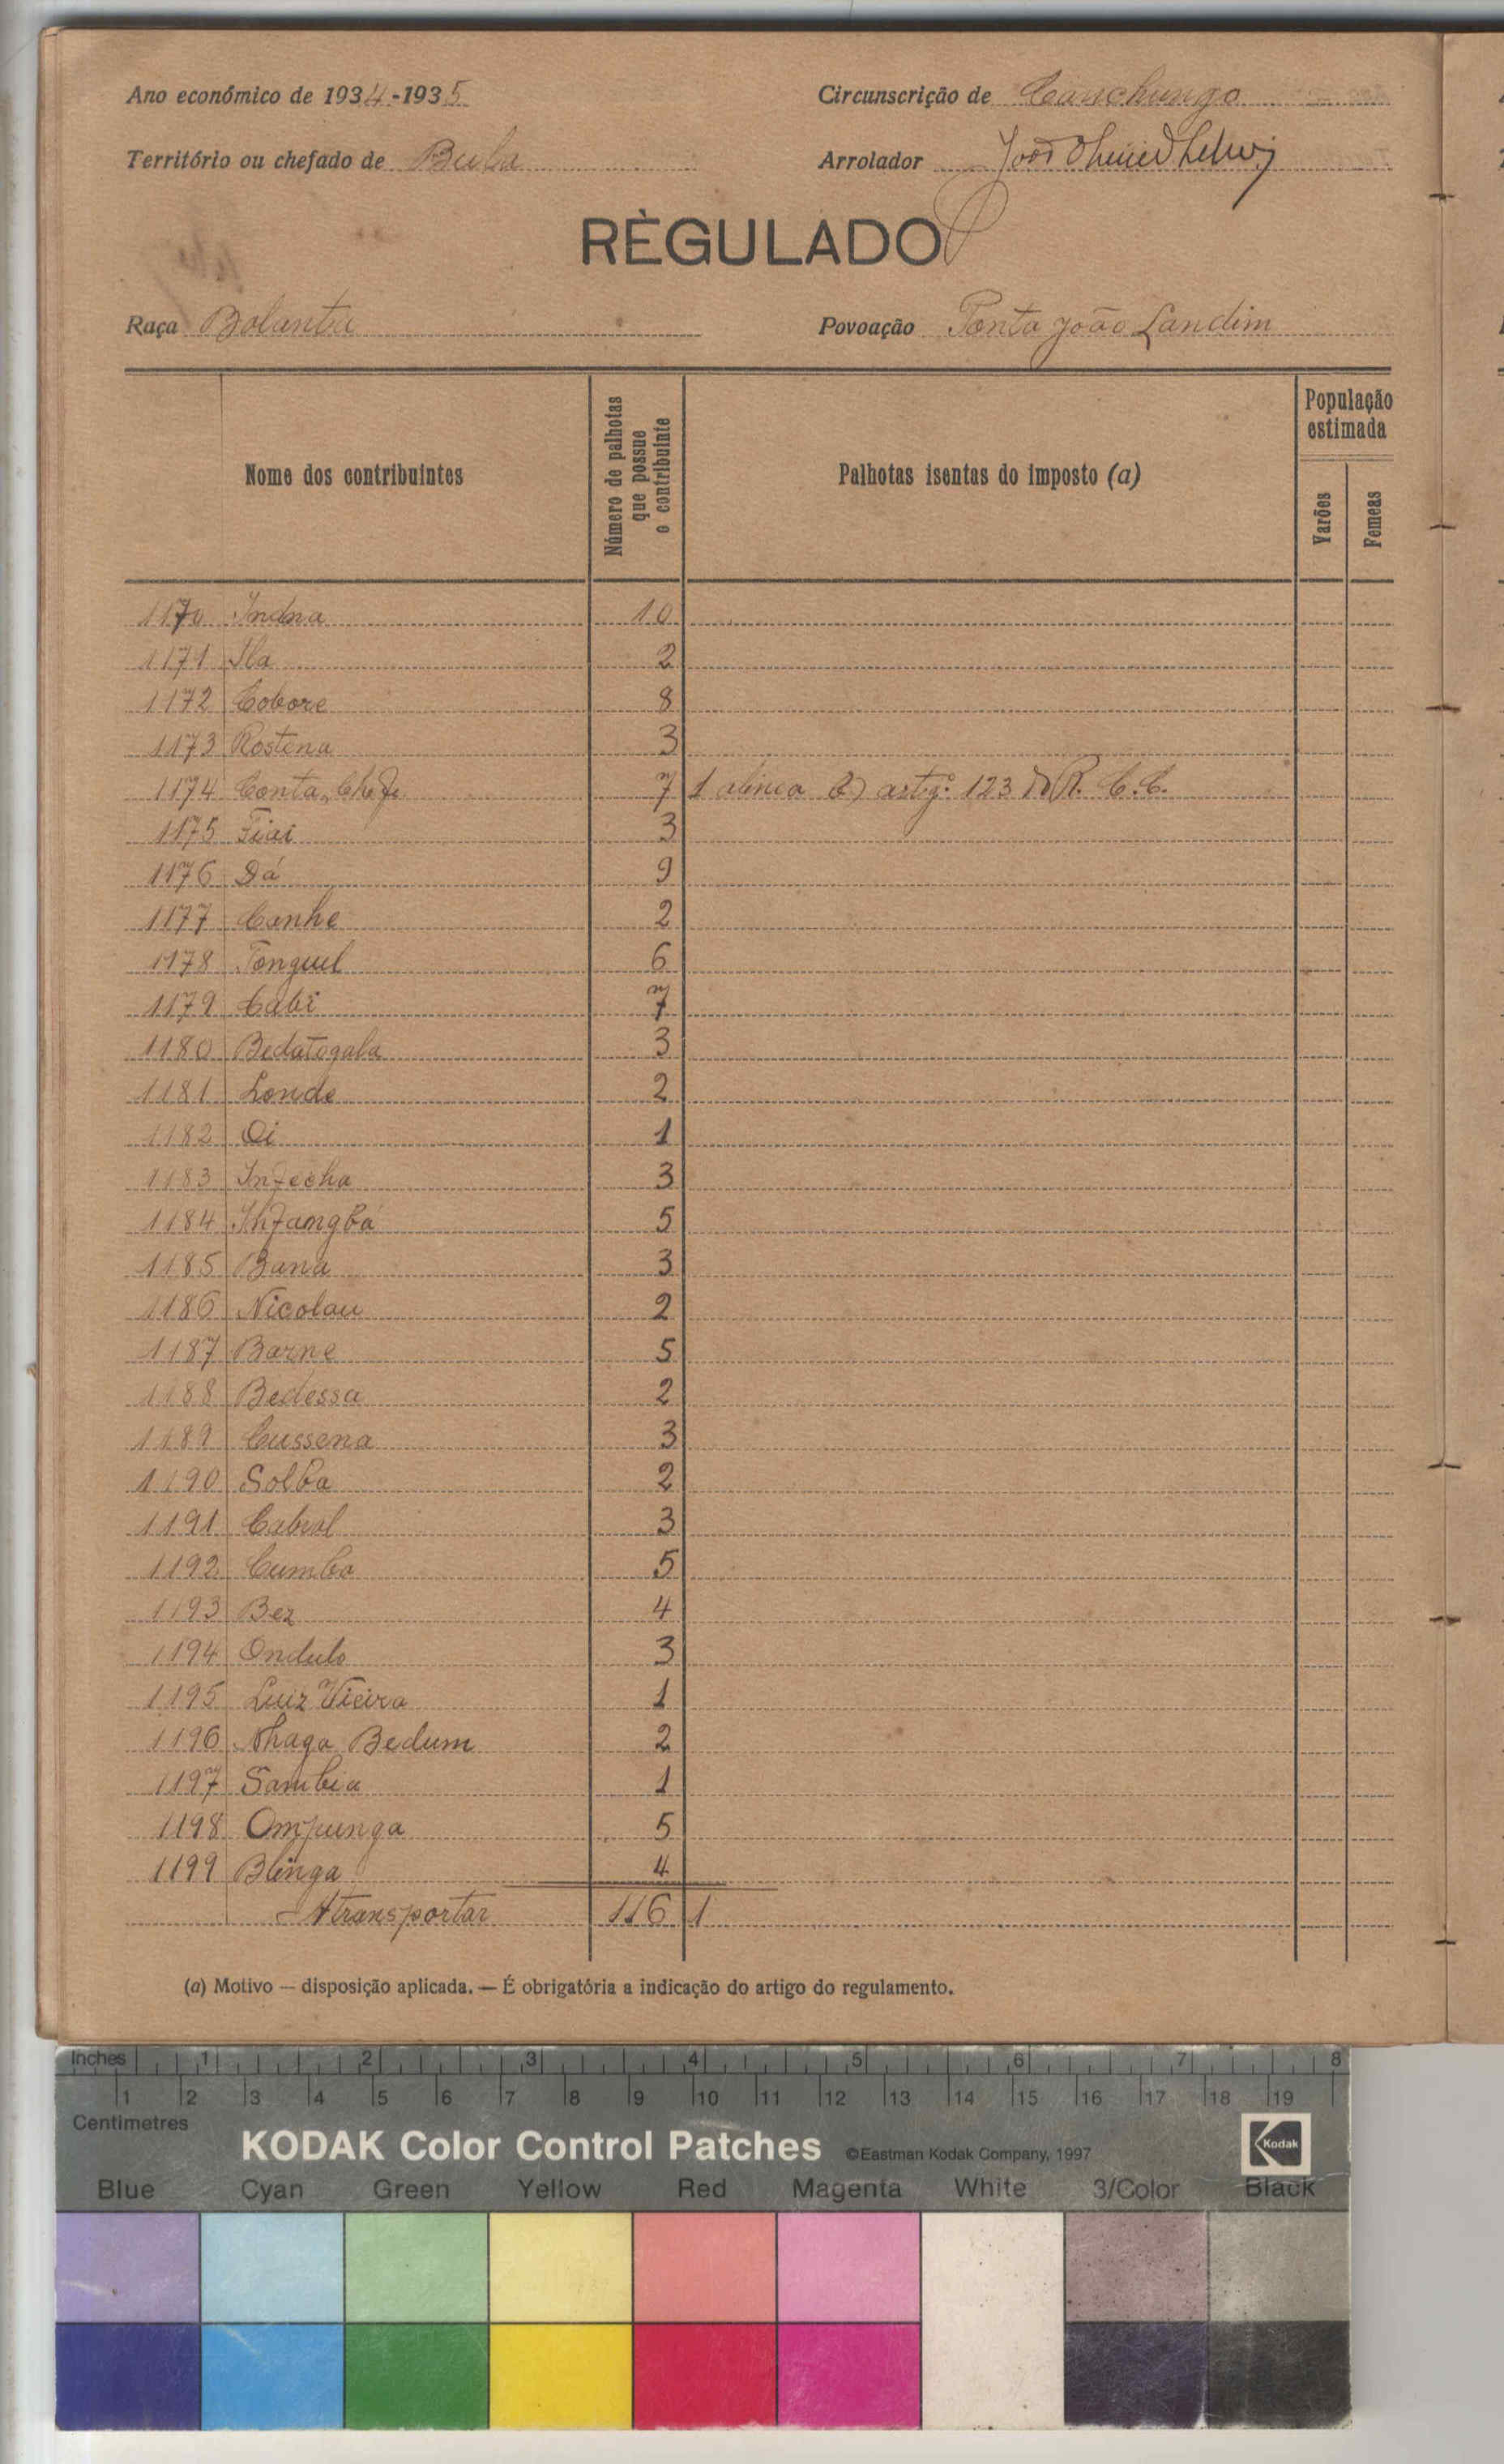 Ano económico de 1934-1935
Circunscrição de Canchungo
Território ou chefado de Bula
Arrolador João
RÈGULADO
Raça Balanta
Povoação Ponta João Landim
Nome dos contribuintes
Número de palhotas que possue o contribuinte
Palhotas isentas do imposto (a)
População estimada
Varões
Femeas
1170 Indna 10
1171 Ila 2
1172 Cobore 8
1173 Rostena 3
1174 Conta, Chefe 7 1 alinea b) artigº 123 do R. C. C.
1175 Fiai 3
1176 Dá 9
1177 Canhe 2
1178 Tonguel 6
1179 Cabi 7
1180 Bedatogala 3
1181 Londe 2
1182 Oi 1
1183 Infecha 3
1184 5
1185 Bana 3
1186 Nicolau 2
1187 Barne 5
1188 Bedessa 2
1189 Cussena 3
1190 Solba 2
1191 Cabral 3
1192 Cumba 5
1193 Bez 4
1194 Ondulo 3
1195 Luiz Vieira 1
1196 Nhaga Bedum 2
1197 Sambia 1
1198 Ompunga 5
1199 Blinga 4
A transportar 116 1
(a) Motivo — disposição aplicada. — É obrigatória a indicação do artigo do regulamento.
Inches 1 2 3 4 5 6 7 8
1 2 3 4 5 6 7 8 9 10 11 12 13 14 15 16 17 18 19
Centimetres
KODAK Color Control Patches ©Eastman Kodak Company, 1997 Kodak
Blue Cyan Green Yellow Red Magenta White 3/Color Black